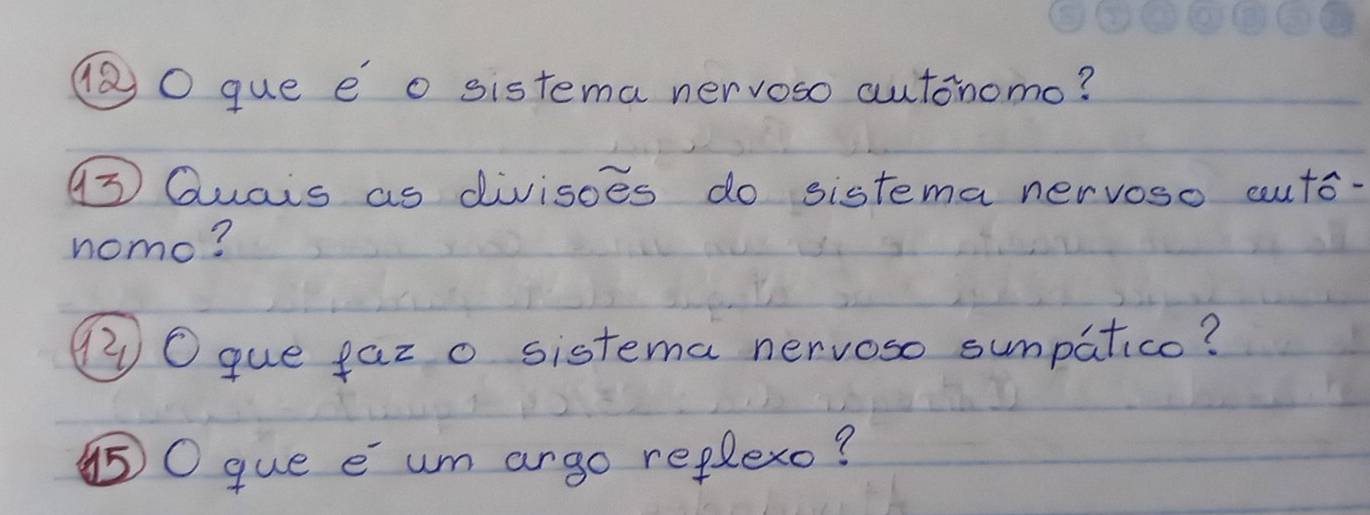 12 O que é o sistema nervoso autônomo?
13 Quais as divisões do sistema nervoso autô-
nomo?
14 O que faz o sistema nervoso sumpático?
15 O que é um argo reflexo?